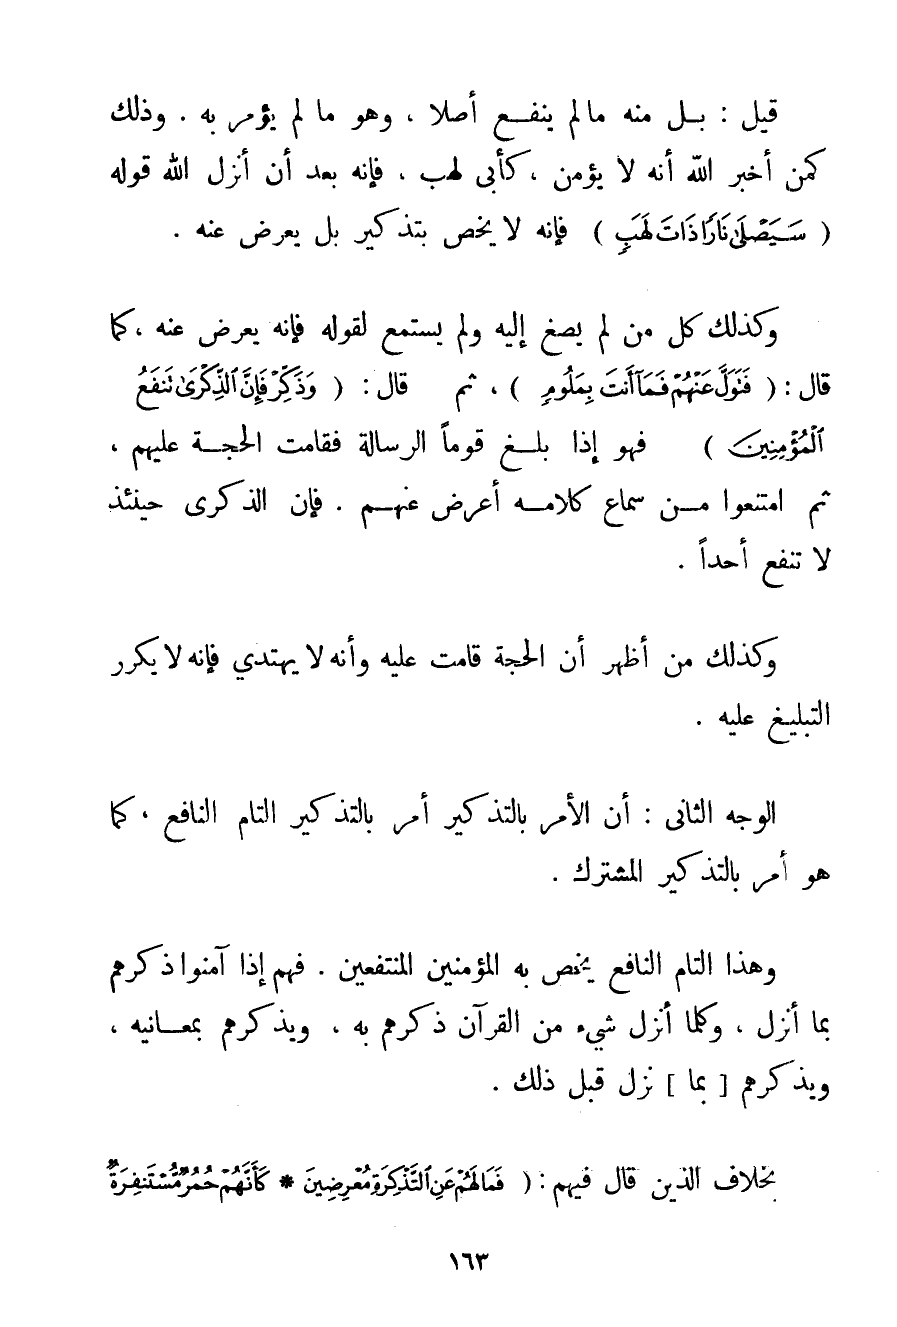 قيل : بـل منه مالم ينفـع أصلا ، وهو ما لم يؤمر به . وذلك
كمن أخبر الله أنه لا يؤمن ، كأبى لهب ، فإنه بعد أن أنزل الله قوله
( سَيَصْلَىٰ نَارًا ذَاتَ لَهَبٍ ) فإنه لا يخص بتذكير بل يعرض عنه .
وكذلك كل من لم يصغ إليه ولم يستمع لقوله فإنه يعرض عنه ، كما
قال : ( فَتَوَلَّ عَنْهُمْ فَمَا أَنتَ بِمَلُومٍ ) ، ثم قال : ( وَذَكِّرْ فَإِنَّ ٱلذِّكْرَىٰ تَنفَعُ
ٱلْمُؤْمِنِينَ ) فهو إذا بلـغ قوماً الرسالة فقامت الحجـة عليهم ،
ثم امتنعوا مـن سماع كلامـه أعرض عنهـم . فإن الذكرى حينئذ
لا تنفع أحداً .
وكذلك من أظهر أن الحجة قامت عليه وأنه لا يهتدي فإنه لا يكرر
التبليغ عليه .
الوجه الثانى : أن الأمر بالتذكير أمر بالتذكير التام النافع ، كما
هو أمر بالتذكير المشترك .
وهذا التام النافع يخص به المؤمنين المنتفعين . فهم إذا آمنوا ذكرهم
بما أنزل ، وكلما أنزل شيء من القرآن ذكرهم به ، ويذكرهم بمعـانيه ،
ويذكرهم [ بما ] نزل قبل ذلك .
بخلاف الذين قال فيهم : ( فَمَا لَهُمْ عَنِ ٱلتَّذْكِرَةِ مُعْرِضِينَ * كَأَنَّهُمْ حُمُرٌ مُّسْتَنفِرَةٌ
١٦٣